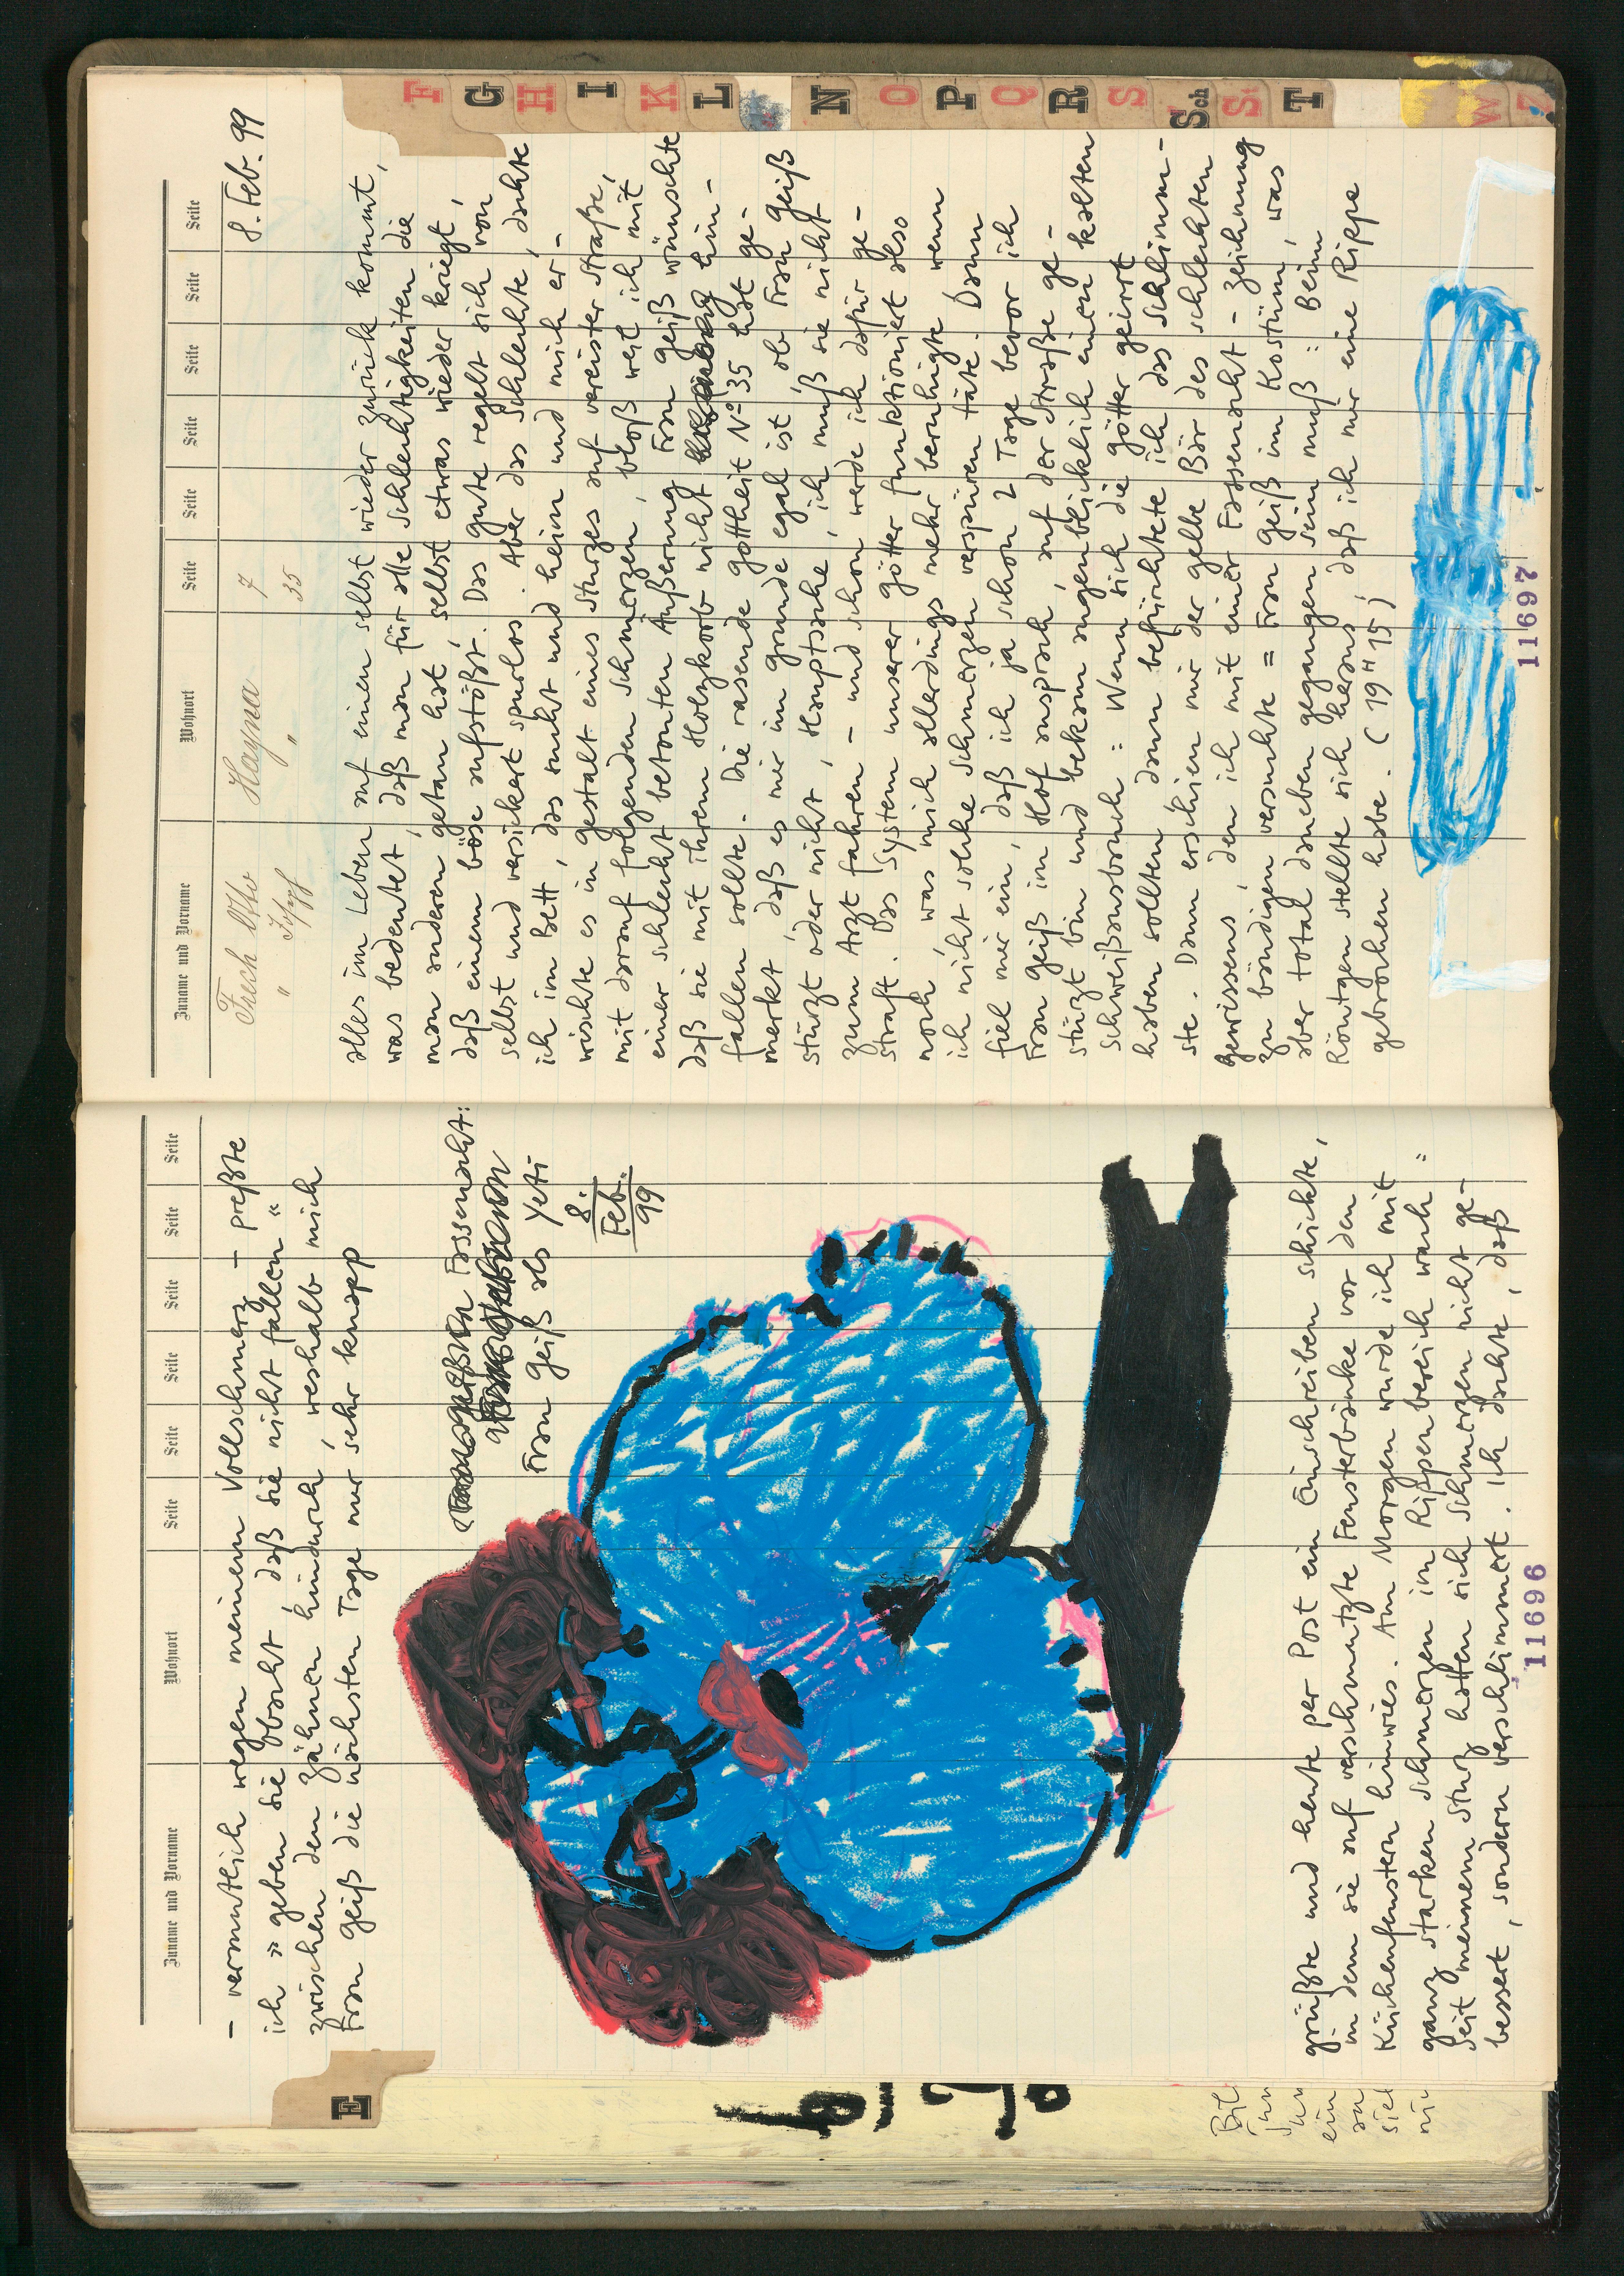 Zuname und Vorname Wohnort Seite Seite Seite Seite Seite Seite
– vermutlich wegen meinem Vollschmerz – preßte
ich » geben sie obacht, daß sie nicht fallen «
zwischen den Zähnen hindurch, weshalb mich
Frau Geiß die nächsten Tage nur sehr knapp
Fassenacht:
Frau Geiß als Yeti
8.
Feb.
99
grüßte und heute per Post ein Einschreiben schickte,
in dem sie auf verschmutzte Fensterbänke vor den
Küchenfenstern hinwies. Am Morgen wurde ich mit
ganz starken Schmerzen im Rippenbereich wach:
Seit meinem Sturz hatten sich Schmerzen nicht ge-
bessert, sondern verschlimmert. Ich dachte, daß
11696
E
Zuname und Vorname Wohnort Seite Seite Seite Seite Seite Seite
Frech Otto Hayna 7
" " 35
8. Feb. 99
alles im Leben auf einen selbst wieder zurück kommt,
was bedeutet, daß man für alle Schlechtigkeiten die
man anderen getan hat, selbst etwas wieder kriegt,
daß einem böse aufstößt. Das gute regelt sich von
selbst und versickert spurlos. Aber das Schlechte, dachte
ich im Bett, das sucht und heim und mich er-
wischte es in Gestalt eines Sturzes auf vereister Straße,
mit darauf folgenden Schmerzen, bloß weil ich mit
einer schlecht betonten Äußerung Frau Geiß wünschte
daß sie mit ihrem Holzkorb nicht hin-
fallen sollte. Die rasende Gottheit N° 35 hat ge-
merkt, daß es mir im Grunde egal ist, ob Frau Geiß
stürzt oder nicht, Hauptsache, ich muß sie nicht
zum Arzt fahren – und schon werde ich dafür ge-
straft. Das System unserer Götter funktioniert also
noch, was mich allerdings mehr beruhigte wenn
ich nicht solche Schmerzen verspüren täte. Dann
fiel mir ein, daß ich ja schon 2 Tage bevor ich
Frau Geiß im Hof ansprach, auf der Straße ge-
stürzt bin und bekam augenblicklich einen kalten
Schweißausbruch: Wenn sich die Götter geirrt
haben sollten dann befürchtete ich das Schlimm-
ste. Dann erschien mir der gelbe Bär des schlechten
Gewissens, den ich mit einer Fassenacht-Zeichnung
zu bändigen versuchte = Frau Geiß im Kostüm, was
aber total daneben gegangen sein muß: Beim
Röntgen stellte sich heraus, daß ich mir eine Rippe
gebrochen habe. (19 H 15)
11697
F
G
H
I
K
L
N
O
P
Q
R
S
Sch
St
T
W
Z